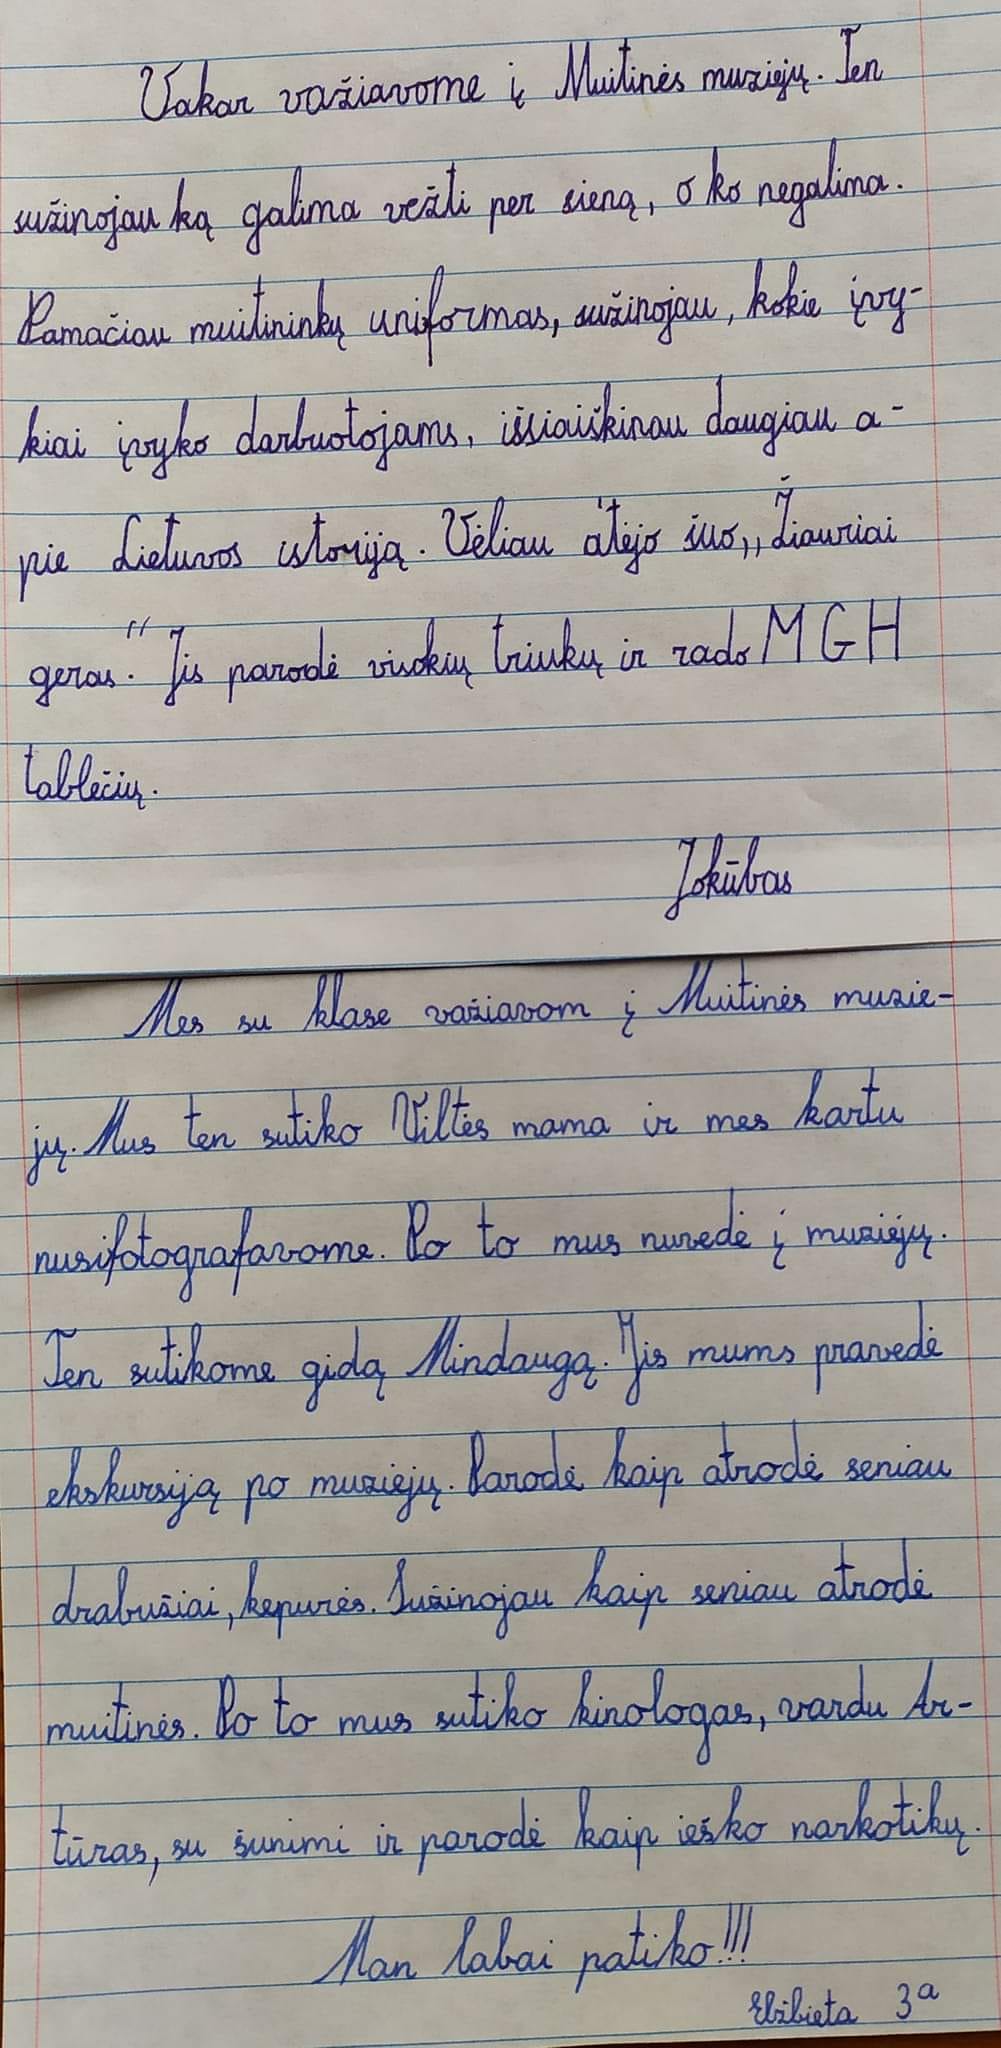 Vakar važiavome į Muitinės muziejų. Ten
sužinojau ką galima vežti per sieną, o ko negalima.
Pamačiau muitininkų uniformas, sužinojau, kokie įvy-
kiai įvyko darbuotojams, išsiaiškinau daugiau a-
pie Lietuvos istoriją. Vėliau atėjo šuo „Žiauriai
geras." Jis parodė visokių triukų ir rado MGH
tablečių.
Jokūbas
Mes su klase važiavom į Muitinės muzie-
jų. Mus ten sutiko Viltės mama ir mes kartu
nusifotografavome. Po to mus nuvedė į muziejų.
Ten sutikome gidą Mindaugą. Jis mums pravedė
ekskursiją po muziejų. Parodė kaip atrodė seniau
drabužiai, kepurės. Sužinojau kaip seniau atrodė
muitinės. Po to mus sutiko kinologas, vardu Ar-
tūras, su šunimi ir parodė kaip ieško narkotikų.
Man labai patiko!!!
Elžbieta 3a